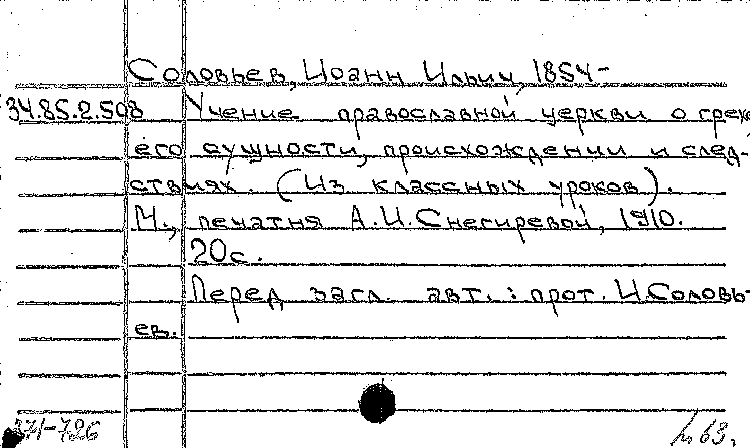 Соловьев, Иоанн Ильич, 1854-
34.85.2.508 Учение православной церкви о грехе,
его сущности, происхождении и след-
ствиях. (Из классных уроков).
М., печатня А.И.Снегиревой, 1910.
20с.
Перед загл. авт.: прот. И.Соловь-
ев.
371-726